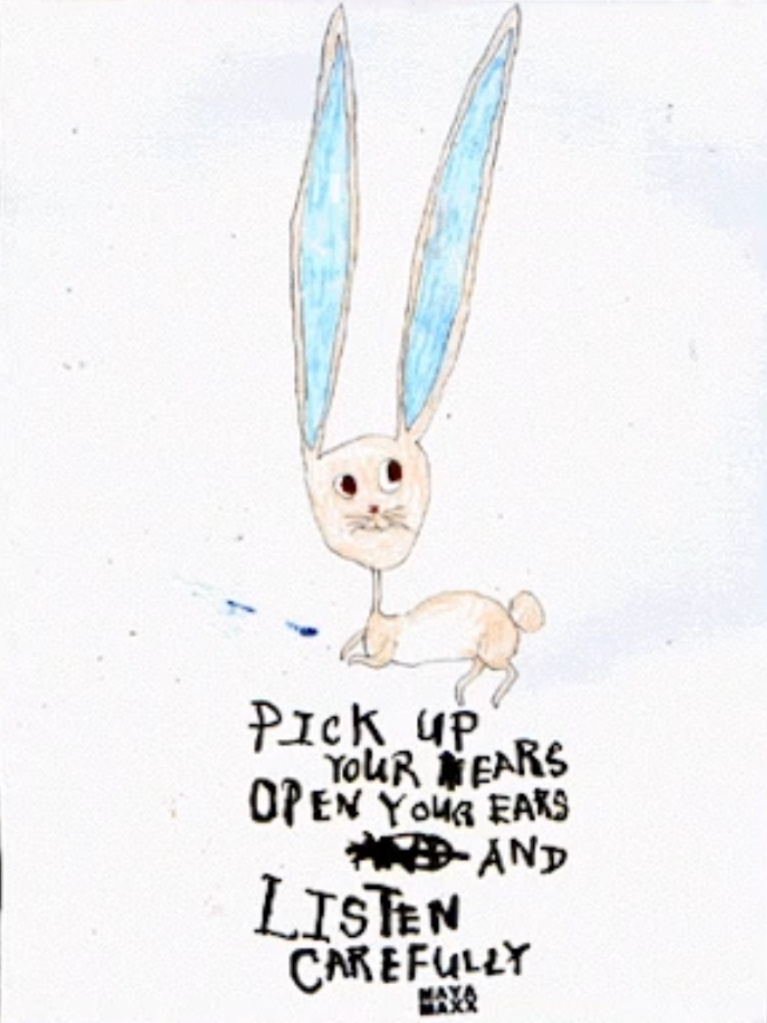 PICK UP
YOUR EARS
OPEN YOUR EARS
AND
LISTEN
CAREFULLY
MAYA
MAXX